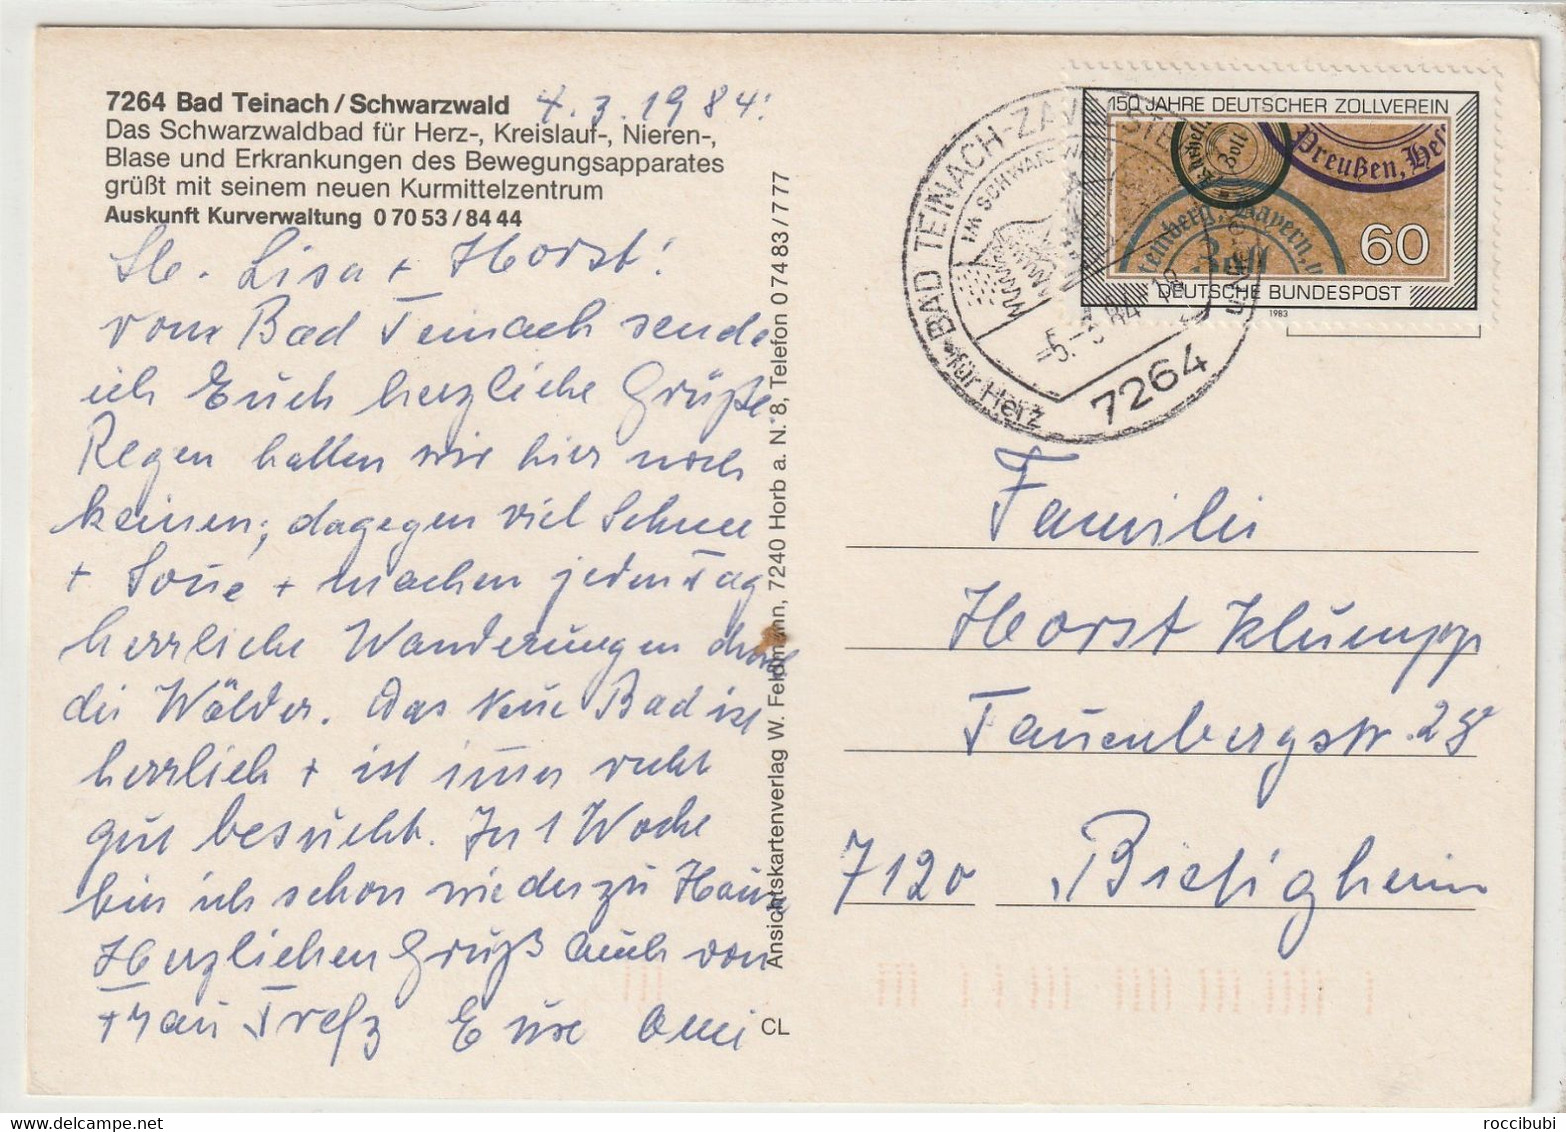 7264 Bad Teinach/Schwarzwald 4.3.1984.
Das Schwarzwaldbad für Herz-, Kreislauf-, Nieren-,
Blase und Erkrankungen des Bewegungsapparates
grüßt mit seinem neuen Kurmittelzentrum
Auskunft Kurverwaltung 0 70 53/84 44
Lb. Lisa + Horst!
vom Bad Teinach sende
ich Euch herzliche Grüße.
Regen hatten wir hier noch
keinen, dagegen viel Schnee
+ Sonne + machen jeden Tag
herrliche Wanderungen durch
die Wälder. Das neue Bad ist
herrlich + ist immer recht
gut besucht. In 1 Woche
bin ich schon wieder zu Hause
Herzlichen Gruß auch von
Frau Trefz Eure Omi
Ansichtskartenverlag W. Feldmann, 7240 Horb a. N. 8, Telefon 0 74 83/7 77
CL
BAD TEINACH-ZAVELSTEIN
IM SCHWARZWALD
-5.-3.84-18
7264
für Herz
und Nieren
150 JAHRE DEUTSCHER ZOLLVEREIN
Zoll
Preußen, Hes
temberg, Bayern,
Zoll
60
DEUTSCHE BUNDESPOST
1983
Familie
Horst Klumpp
Tauenbergstr. 28
7120 Bietigheim
roccibubi